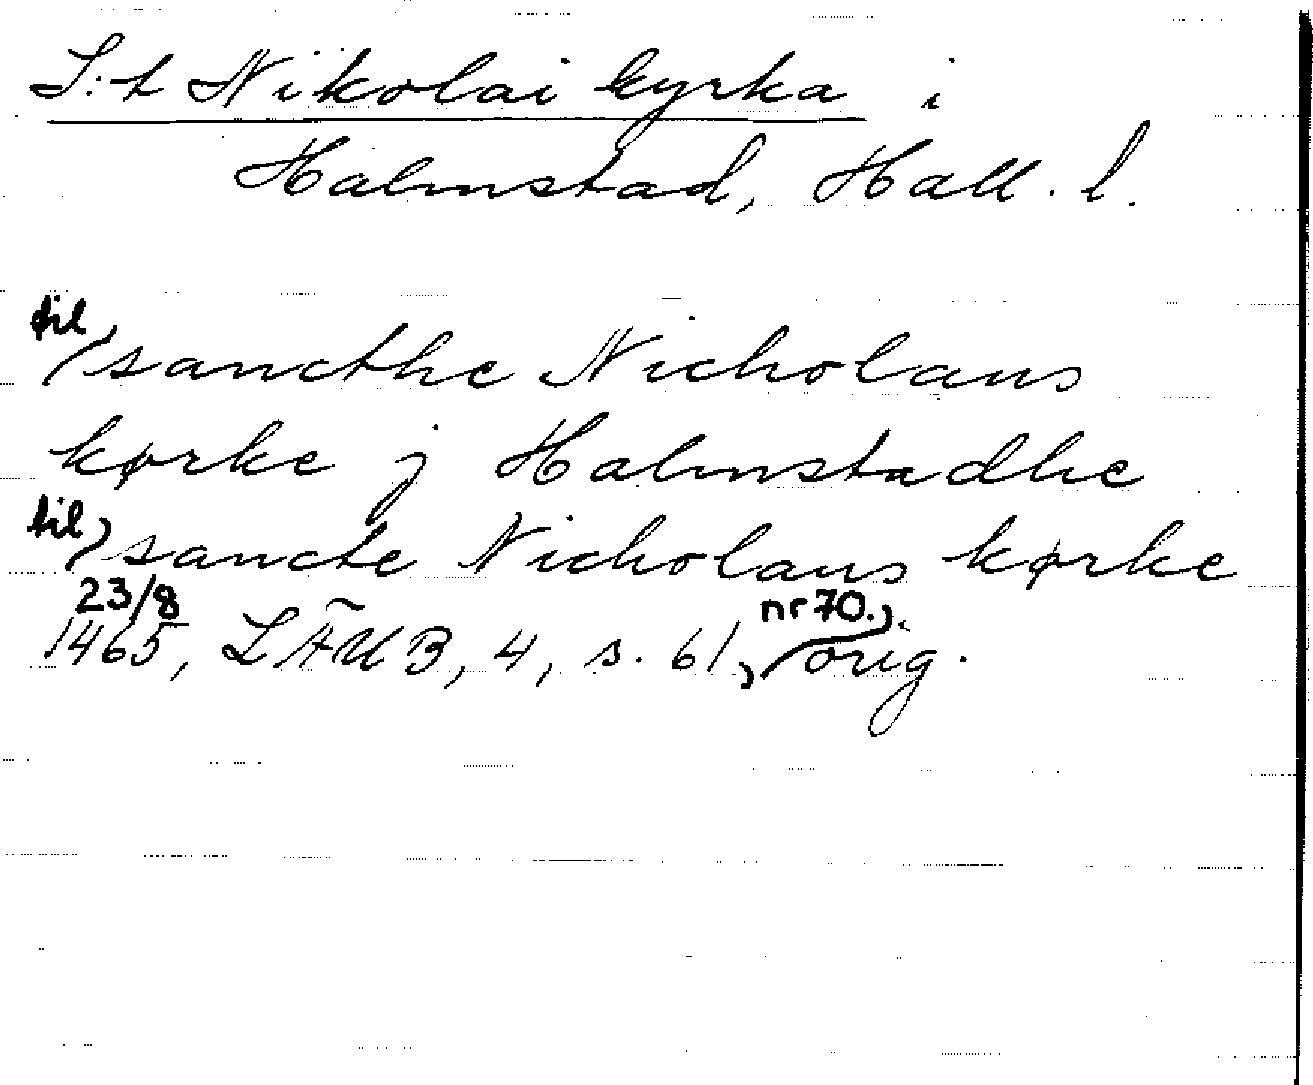 S:t Nikolai kyrka i
Halmstad, Hall. l.
til) sancthe Nicholaus
kørke j Halmstadhe
til) sancte Nicholaus kørke
23/8 1465, LÄUB, 4, s. 61, nr 70.), orig.